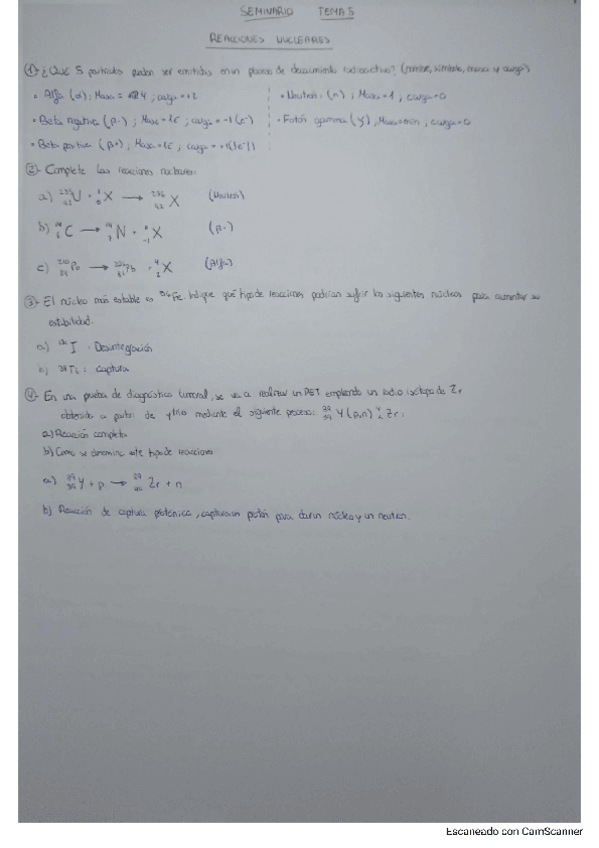 SEMINARIO TEMA 5
REACCIONES NUCLEARES
①- ¿Qué 5 partículas pueden ser emitidas en un proceso de decaimiento radioactivo? (nombre, símbolo, masa y carga)
• Alfa (α); Masa = 4; carga = +2
• Beta negativa (β-); Masa = 1e⁻; carga = -1 (e⁻)
• Beta positiva (β+); Masa = 1e⁻; carga = +1
• Neutron: (n); Masa = 1, carga = 0
• Fotón gamma (γ), Masa = , carga = 0
②- Complete las reacciones nucleares:
a) U + X → X (Neutrón)
b) C → N + X (β-)
c) Po → Pb + X (Alfa)
③- El núcleo más estable es ⁵⁶Fe. Indique qué tipo de reacciones podrían sufrir los siguientes núcleos para aumentar su
estabilidad.
a) I : Desintegración
b) Ti : captura
④- En una prueba de diagnóstico tumoral, se va a realizar un PET empleando un radio isótopo de Zr
obtenido a partir de ytrio mediante el siguiente proceso: Y (p,n) Zr:
a) Reacción completa
b) Como se denomina este tipo de reacciones
a) Y + p → Zr + n
b) Reacción de captura protónica, captura un protón para dar un núcleo y un neutrón.
Escaneado con CamScanner